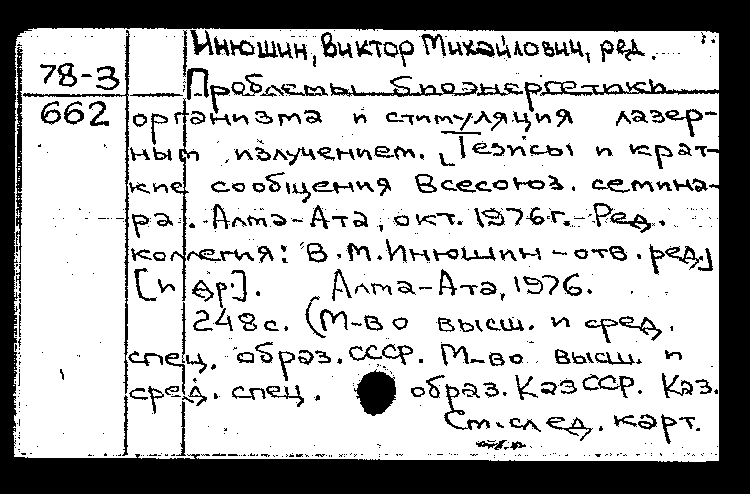 Инюшин, Виктор Михайлович, ред.
78-3
Проблемы биоэнергетики
662
организма и стимуляция лазер-
ным излучением. [Тезисы и крат-
кие сообщения Всесоюз. семина-
ра. Алма-Ата, окт. 1976г. Ред.
коллегия: В.М.Инюшин - отв. ред.]
[и др.]. Алма-Ата, 1976.
248с. (М-во высш. и сред.
спец. образ. СССР. М-во высш. и
сред. спец. образ. КазССР. Каз.
См. след. карт.